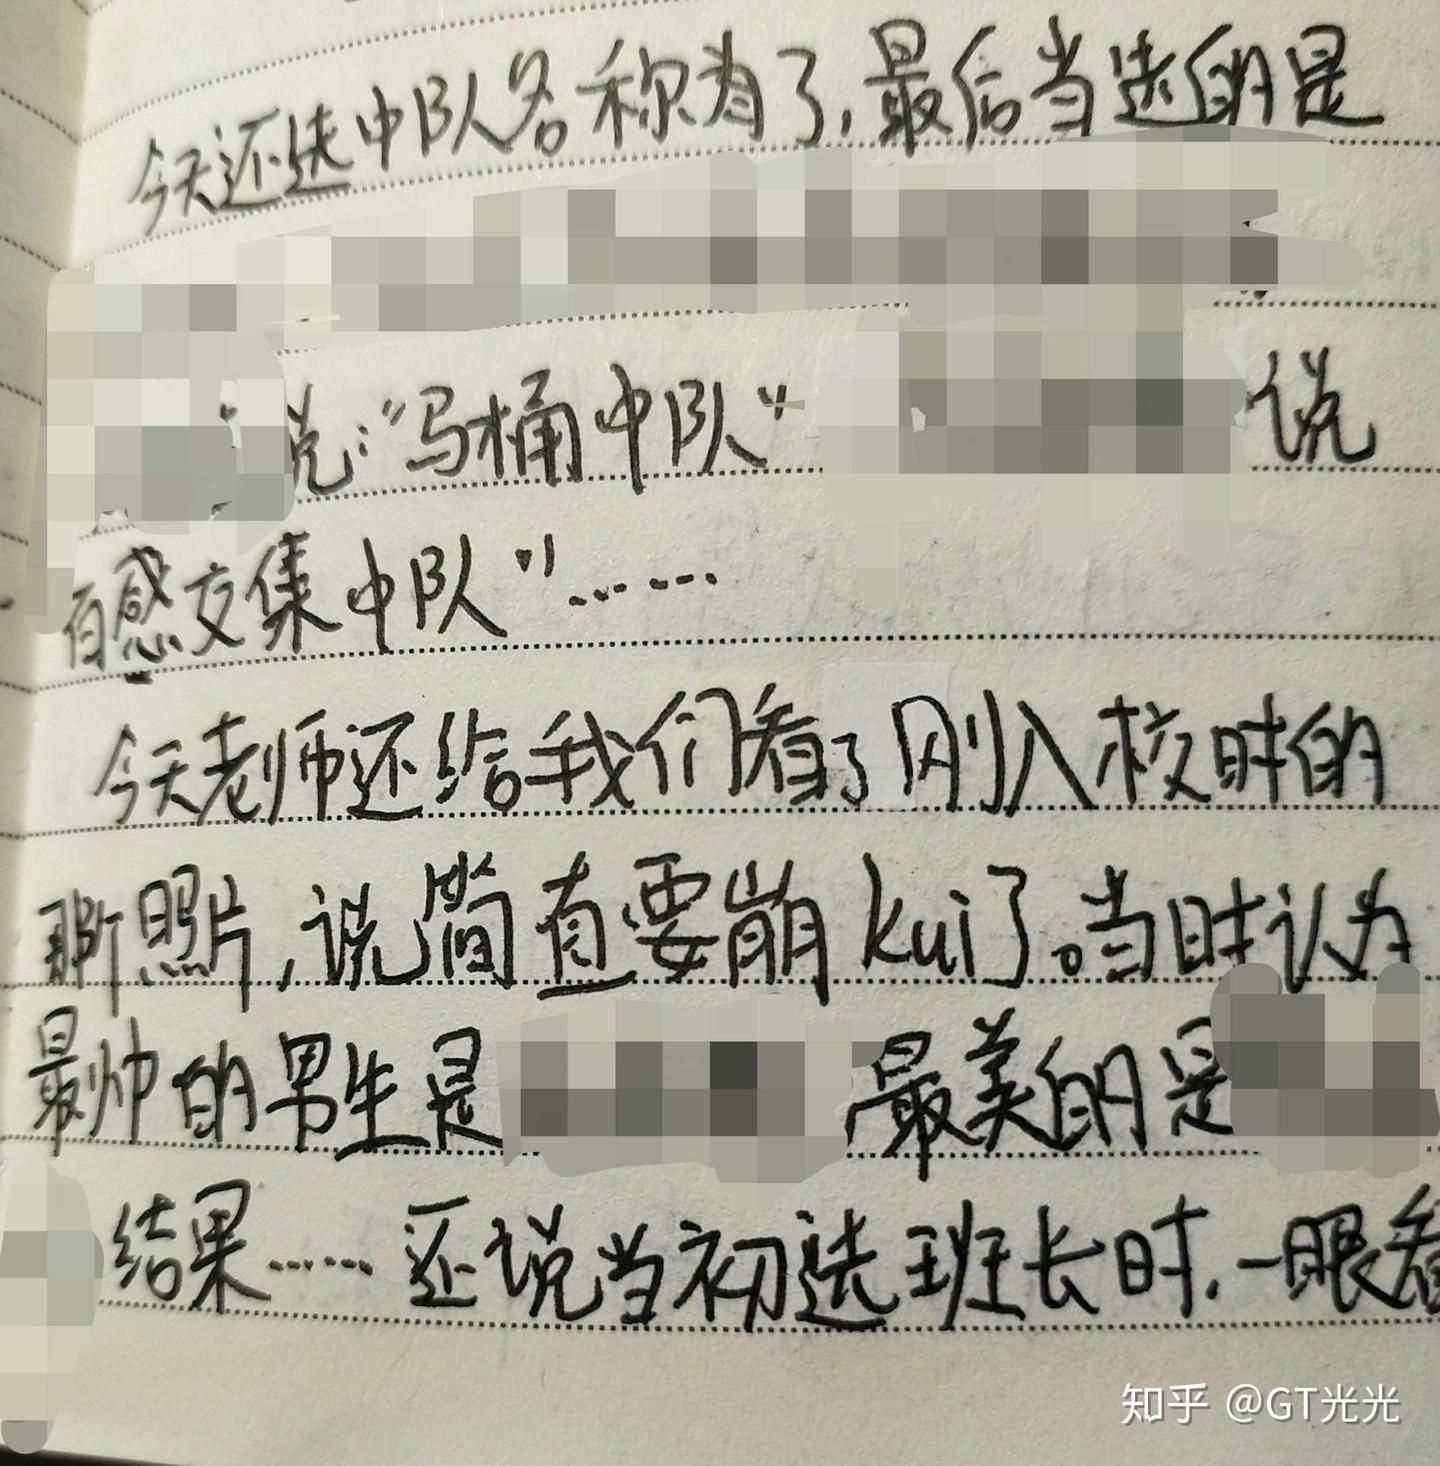 今天还选中队名称为了,最后当选的是
说:“马桶中队” 说
百感交集中队”……
今天老师还给我们看了刚入校时的
那照片,说简直要崩kui了。当时认为
最帅的男生是 最美的是
结果……还说当初选班长时,一眼看
知乎 @GT光光